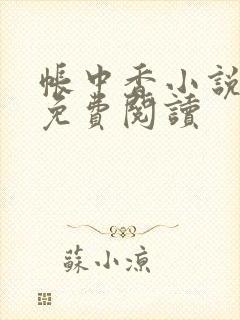 帳中香小說
免費閱讀
蘇小凉